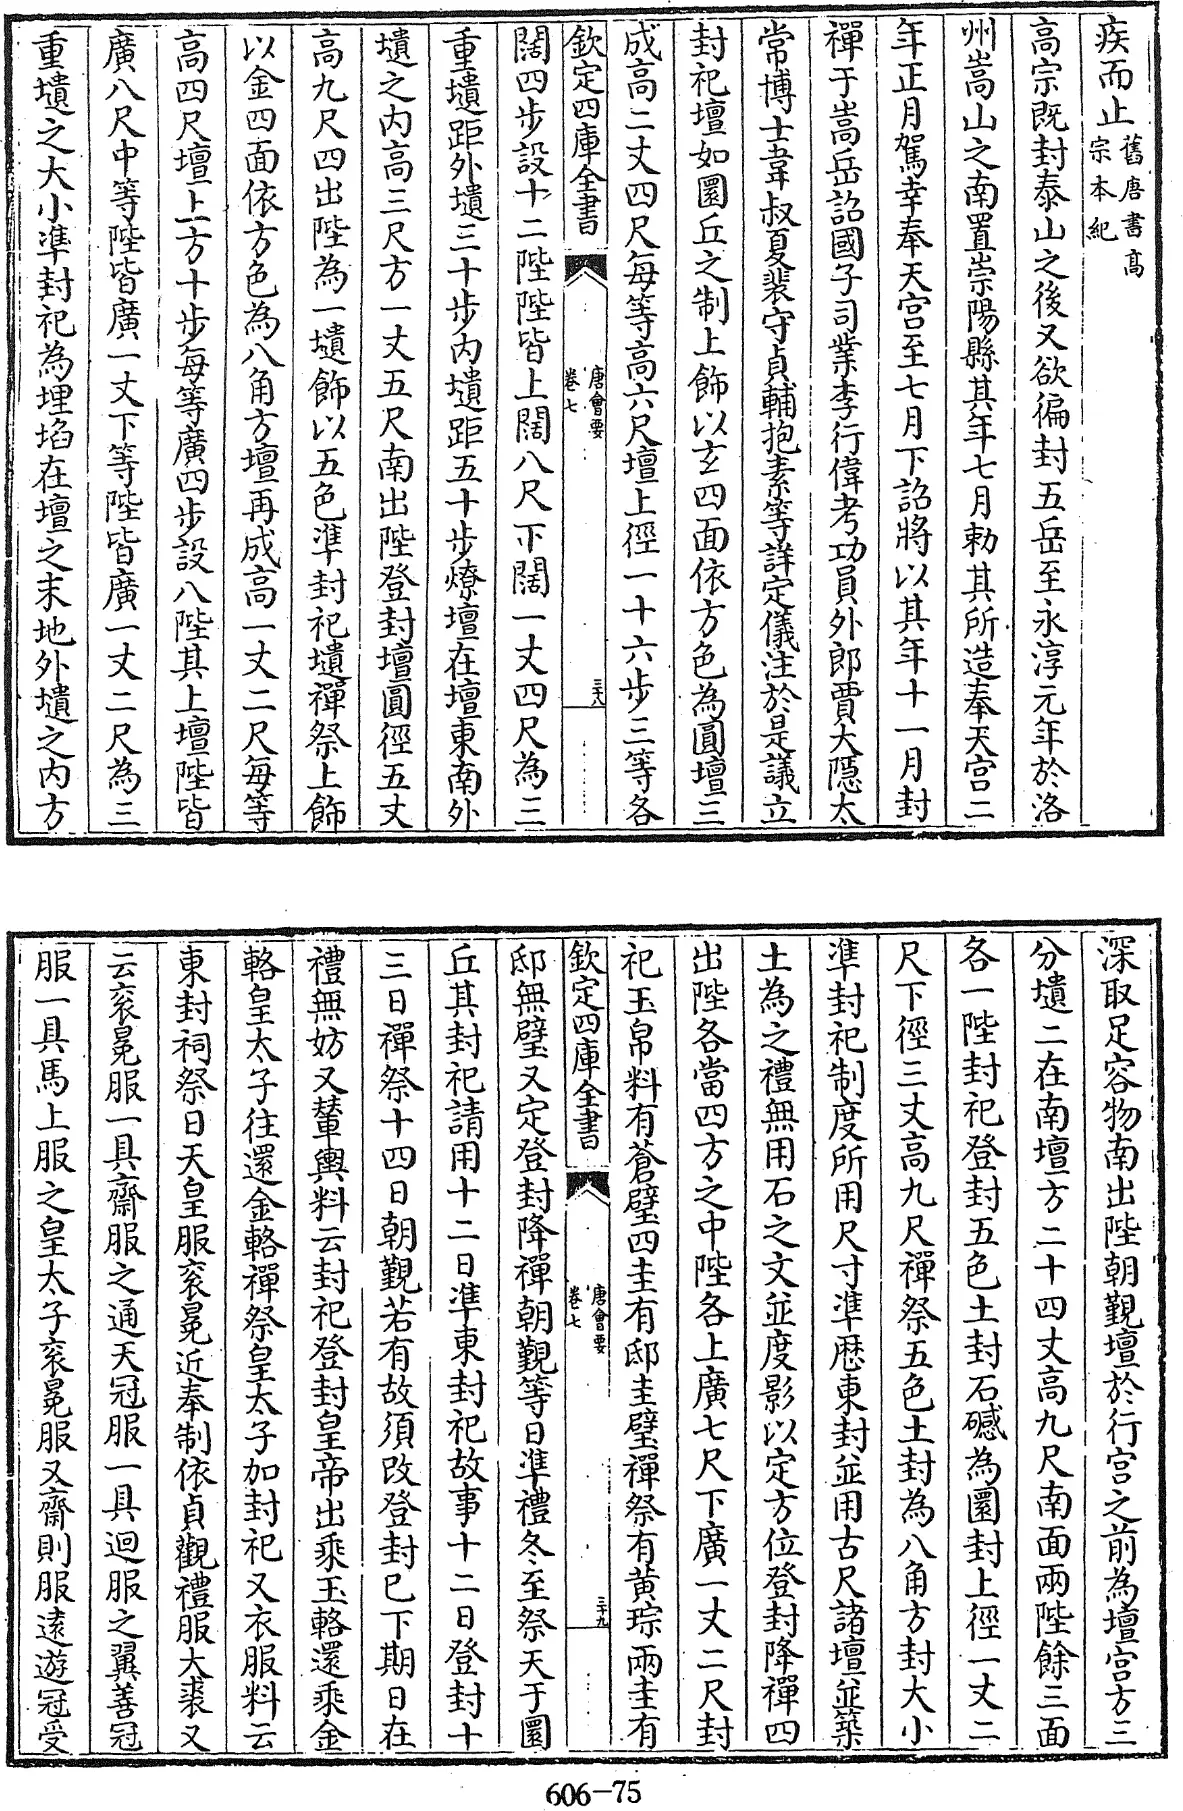 疾而止舊唐書高
宗本紀
高宗既封泰山之後又欲徧封五岳至永淳元年於洛
州嵩山之南置崇陽縣其年七月勅其所造奉天宫二
年正月駕幸奉天宫至七月下詔將以其年十一月封
禪于嵩岳詔國子司業李行偉考功員外郎賈大隱太
常博士韋叔夏裴守貞輔抱素等詳定儀注於是議立
封祀壇如圜丘之制上飾以玄四面依方色為圓壇三
成高二丈四尺每等高六尺壇上徑一十六步三等各
欽定四庫全書
唐會要
卷七
三十八
闊四步設十二陛陛皆上闊八尺下闊一丈四尺為三
重壝距外壝三十步内壝距五十步燎壇在壇東南外
壝之内高三尺方一丈五尺南出陛登封壇圓徑五丈
高九尺四出陛為一壝飾以五色準封祀壝禪祭上飾
以金四面依方色為八角方壇再成高一丈二尺每等
高四尺壇上方十步每等廣四步設八陛其上壇陛皆
廣八尺中等陛皆廣一丈下等陛皆廣一丈二尺為三
重壝之大小準封祀為埋埳在壇之未地外壝之内方
深取足容物南出陛朝覲壇於行宫之前為壇宫方三
分壝二在南壇方二十四丈高九尺南面兩陛餘三面
各一陛封祀登封五色土封石䃭為圜封上徑一丈二
尺下徑三丈高九尺禪祭五色土封為八角方封大小
準封祀制度所用尺寸準歴東封並用古尺諸壇並築
土為之禮無用石之文並度影以定方位登封降禪四
出陛各當四方之中陛各上廣七尺下廣一丈二尺封
祀玉帛料有蒼璧四圭有邸圭璧禪祭有黄琮兩圭有
欽定四庫全書
唐會要
卷七
三十九
邸無璧又定登封降禪朝覲等日準禮冬至祭天于圜
丘其封祀請用十二日準東封祀故事十二日登封十
三日禪祭十四日朝覲若有故須改登封已下期日在
禮無妨又輦輿料云封祀登封皇帝出乘玉輅還乘金
輅皇太子往還金輅禪祭皇太子加封祀又衣服料云
東封祠祭日天皇服衮冕近奉制依貞觀禮服大裘又
云衮冕服一具齋服之通天冠服一具迴服之翼善冠
服一具馬上服之皇太子衮冕服又齋則服遠遊冠受
606-75